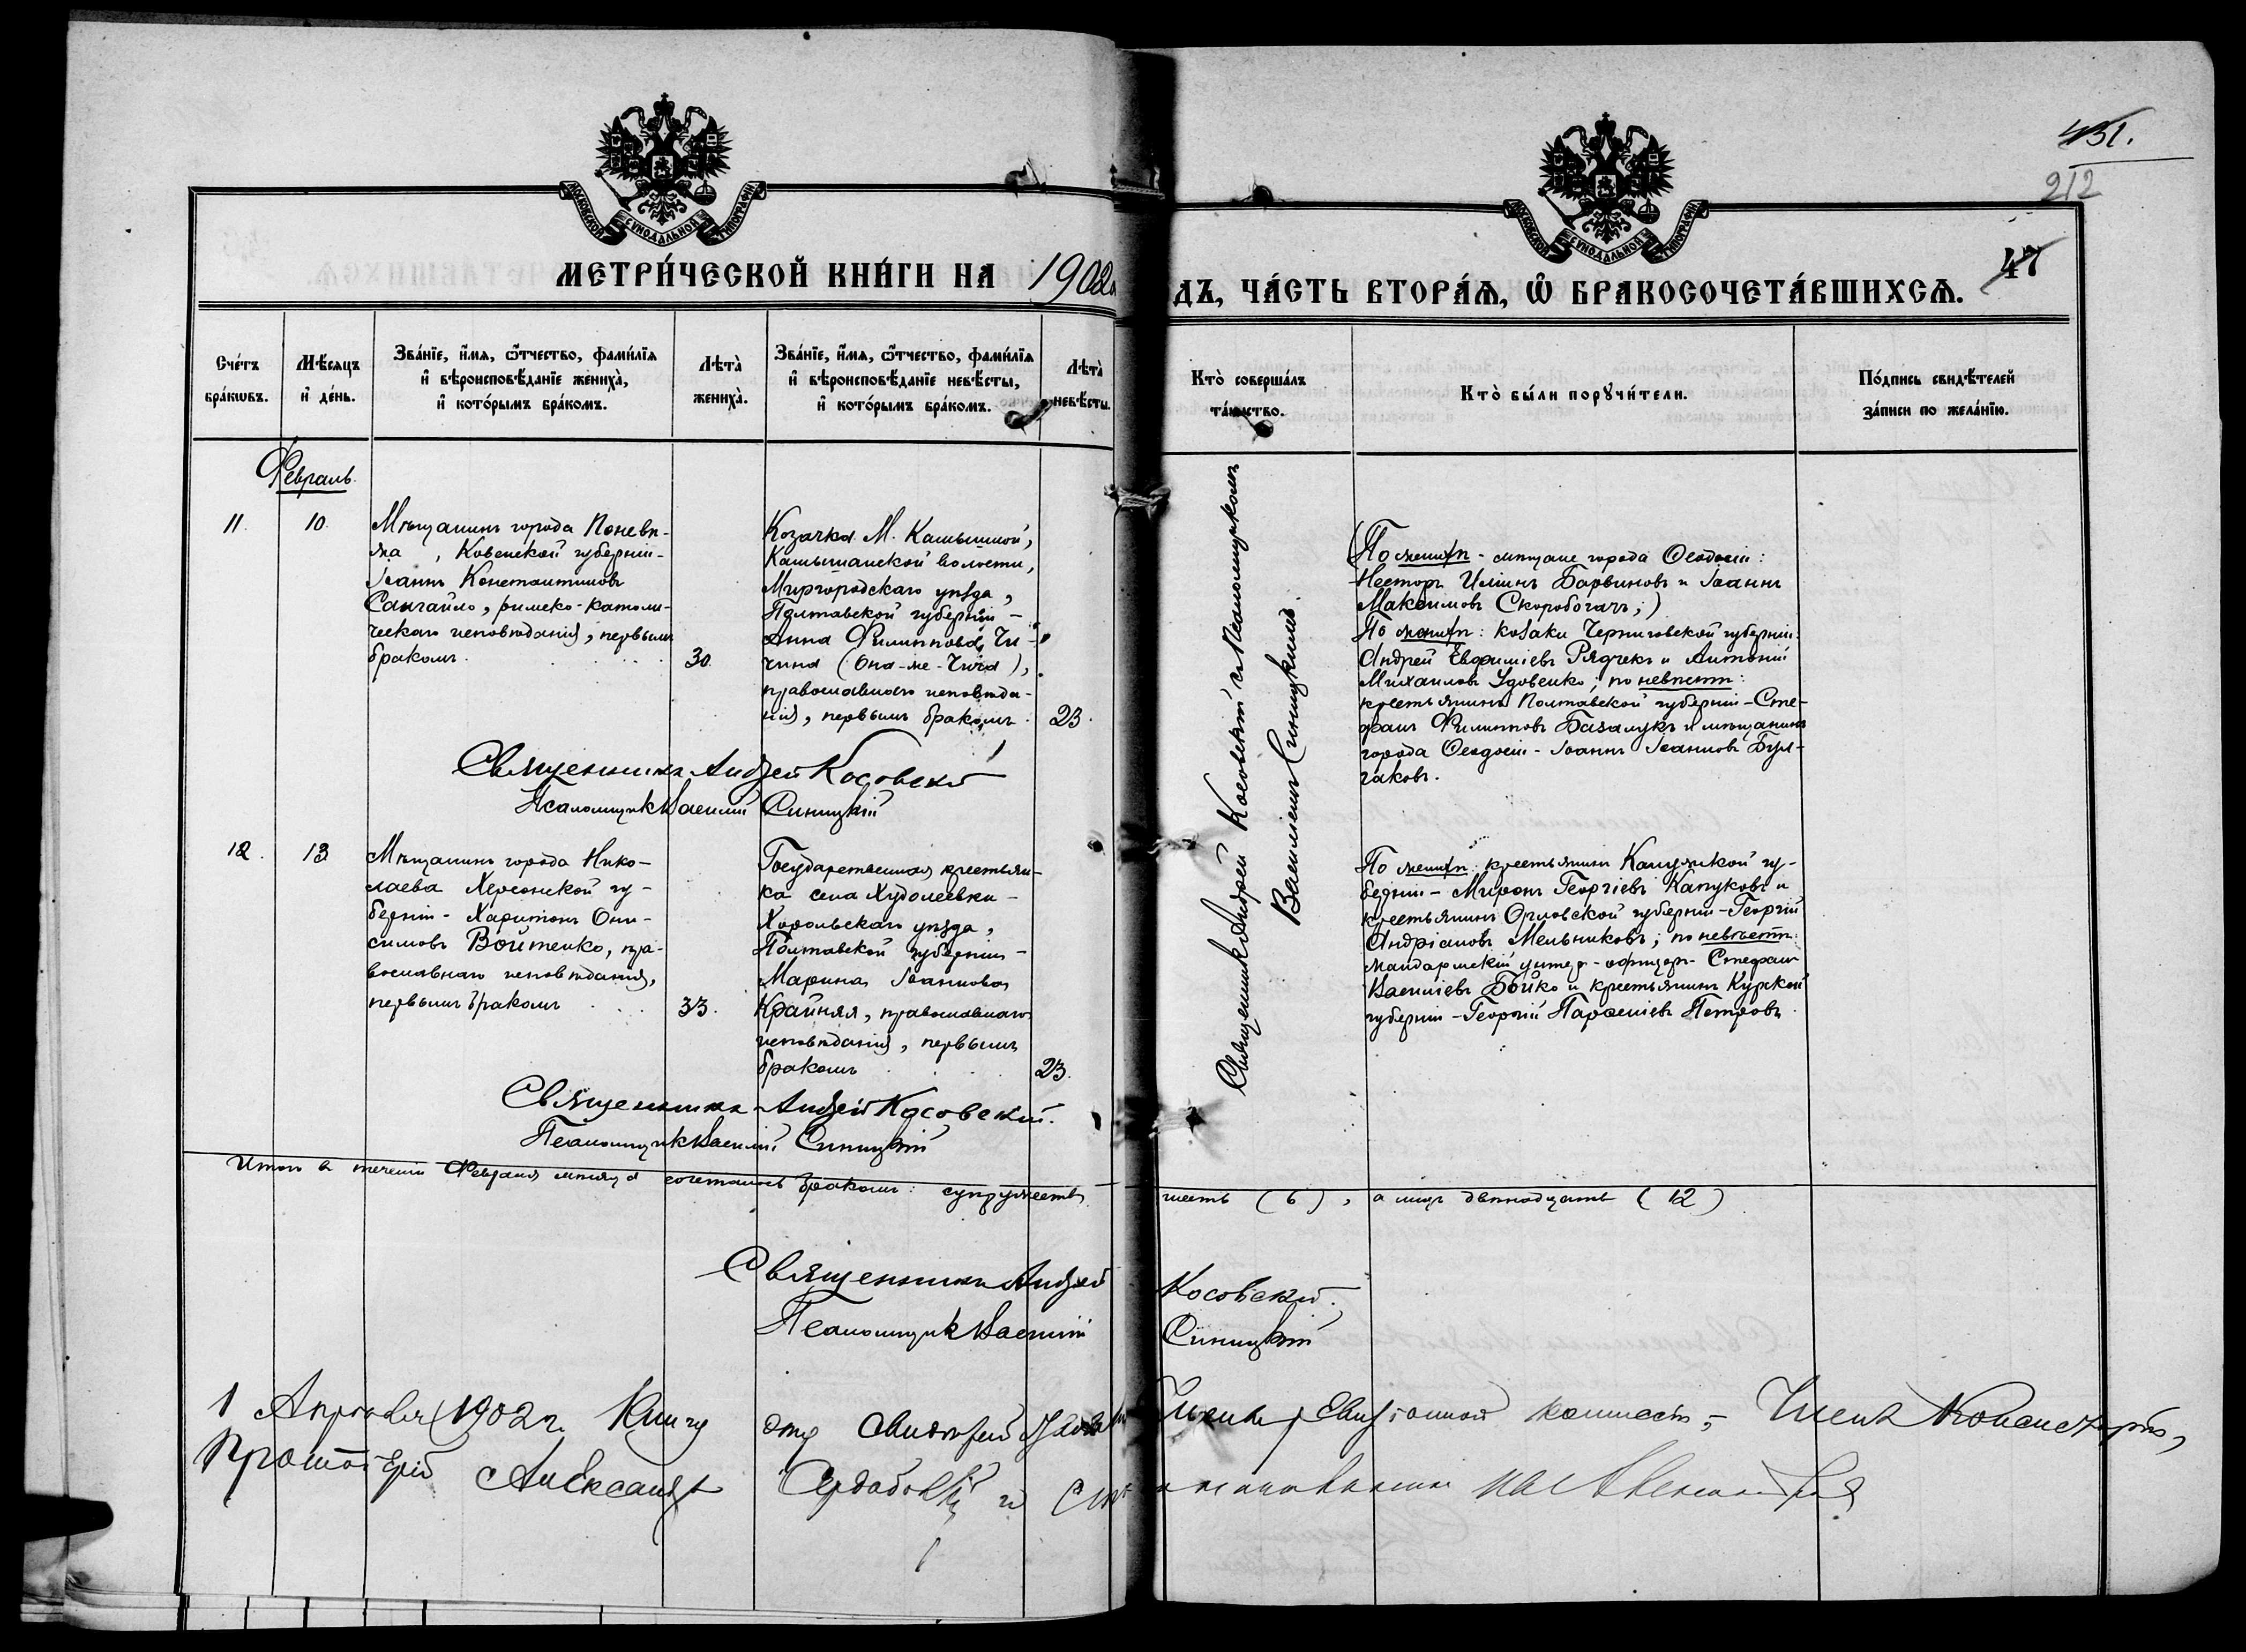 431.
212
47
МОСКОВСКОЙ СѴНОДАЛЬНОЙ ТИПОГРАФІИ
МОСКОВСКОЙ СѴНОДАЛЬНОЙ ТИПОГРАФІИ
МЕТРИ́ЧЕСКОЙ КНИ́ГИ НА 1902
ДЪ, ЧА́СТЬ ВТОРА́Ѧ, Ѽ БРАКОСОЧЕТА́ВШИХСѦ.
Сче́тъ
бра́кѡвъ.
Мѣ́сяцъ
и҆ де́нь.
Зва́нїе, и҆́мя, ѻ҆́тчество, фами́лїя
и҆ вѣроисповѣ́данїе жениха̀,
и҆ кото́рымъ бра́комъ.
Лѣта̀
жениха̀.
Зва́нїе, и҆́мя, ѻ҆́тчество, фами́лїя
и҆ вѣроисповѣ́данїе невѣ́сты,
и҆ кото́рымъ бра́комъ.
Лѣта̀
невѣ́сты.
Кто̀ соверша́лъ
та́инство.
Кто̀ бы́ли порꙋчи́тели.
По́дпись свидѣ́телей
за́писи по жела́нїю.
Февраль.
11.
10.
Мѣщанинъ города Поневѣ-
жа, Ковенской губерніи-
Іоаннъ Константиновъ
Сангайло, римско-католи-
ческаго исповѣданія, первымъ
бракомъ.
30.
Козачка М. Камышной,
Камышанской волости,
Миргородскаго уѣзда,
Полтавской губерніи -
Анна Филиппова Чи-
чина (Она-же-Чича),
православнаго исповѣда-
нія, первымъ бракомъ.
23.
Священникъ Андрей Косовскій
Псаломщикъ Василій Синицкій
Священникъ Андрей Косовскій съ Псаломщикомъ
Василіемъ Синицкимъ.
(По жениху - мѣщане города Ѳеодосіи:
Несторъ Иліинъ Барвиновъ и Іоаннъ
Максимовъ Скоробогачъ;)
По женихѣ: козаки Черниговской губерніи:
Андрей Евфиміевъ Рядчекъ и Антоній
Михаиловъ Удовенко; по невѣстѣ:
крестьянинъ Полтавской губерніи - Сте-
фанъ Филипповъ Базалукъ и мѣщанинъ
города Ѳеодосіи - Іоаннъ Іоанновъ Бул-
гаковъ.
12.
13
Мѣщанинъ города Нико-
лаева Херсонской гу-
берніи - Харитонъ Они-
симовъ Войтенко, пра-
вославнаго исповѣданія,
первымъ бракомъ
33.
Государственная крестьян-
ка села Худолеевки -
Хорольскаго уѣзда,
Полтавской губерніи -
Марина Іоаннова
Крайняя, православнаго
исповѣданія, первымъ
бракомъ
23.
По женихѣ: крестьянинъ Калужской гу-
берніи - Миронъ Георгіевъ Капуковъ и
крестьянинъ Орловской губерніи - Георгій
Андріановъ Мельниковъ; по невѣстѣ:
жандармскій унтер-офицеръ - Стефанъ
Василіевъ Бойко и крестьянинъ Курской
губерніи - Георгій Парѳеніевъ Петровъ.
Священникъ Андрей Косовскій.
Псаломщикъ Василій Синицкій
Итого въ теченіи Февраля мѣсяца сочеталось бракомъ: супружествъ шесть (6), а лицъ двѣнадцать (12)
Священникъ Андрей Косовскій.
Псаломщикъ Василій Синицкій
1 Апрѣля 1902 г. Книгу эту Членъ Консисторіи,
Протоіерей Александръ Сердобольскій и